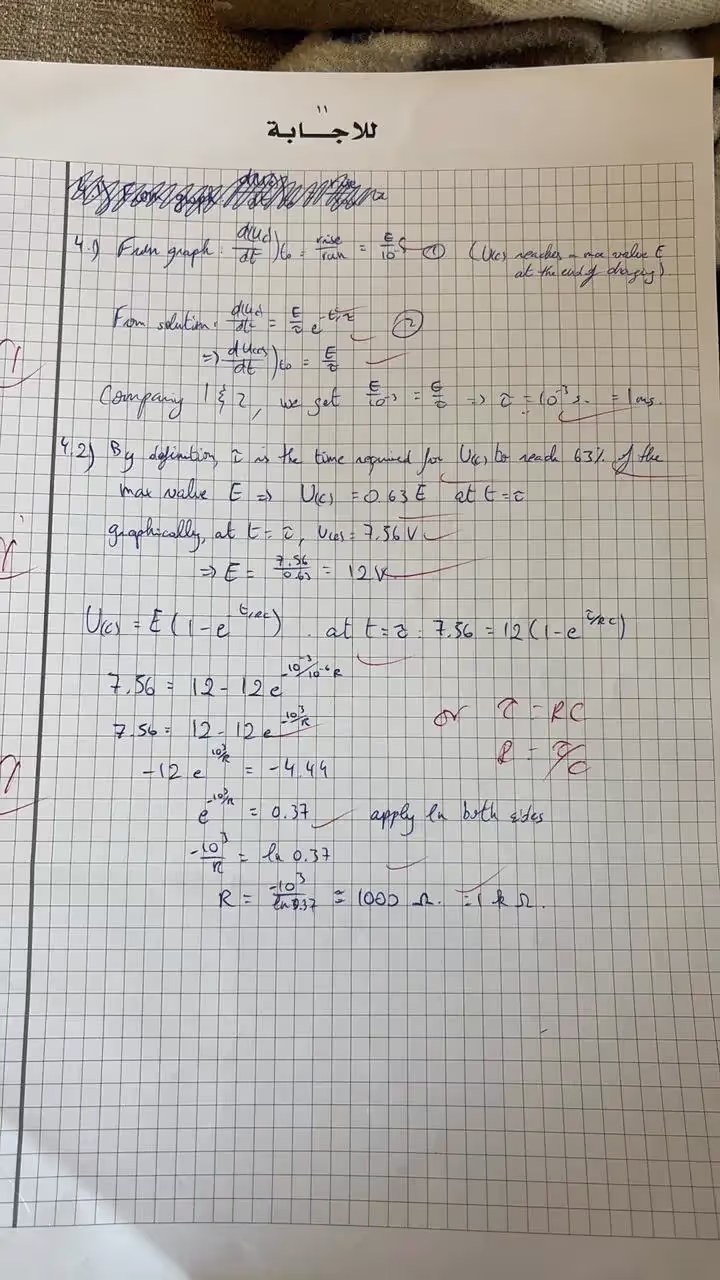 11
للاجابة
4.1) From graph: d(Uc)/dt)t₀ = rise/run = E/10⁻³ ① (U(c) reaches a max value E
at the end of charging)
From solution: d(Uc)/dt = E/τ e^(-t/τ) ②
=> dU(c)/dt)t₀ = E/τ
Comparing 1 & 2, we get E/10⁻³ = E/τ => τ = 10⁻³ s. = 1 ms.
4.2) By definition, τ is the time required for U(c) to reach 63% of the
max value E => U(c) = 0.63 E at t = τ
graphically, at t = τ, U(c) = 7,56 V
=> E = 7.56/0.63 = 12 V
U(c) = E (1 - e^(-t/RC)) . at t = τ : 7.56 = 12 (1 - e^(τ/RC))
7.56 = 12 - 12 e^(-10⁻³/10⁻⁶R)
7.56 = 12 - 12 e^(-10³/R)
or τ = RC
-12 e^(-10³/R) = -4.44
R = τ/C
e^(-10³/R) = 0.37 apply ln both sides
-10³/R = ln 0.37
R = -10³/ln 0.37 ≅ 1000 Ω. = 1 k Ω.